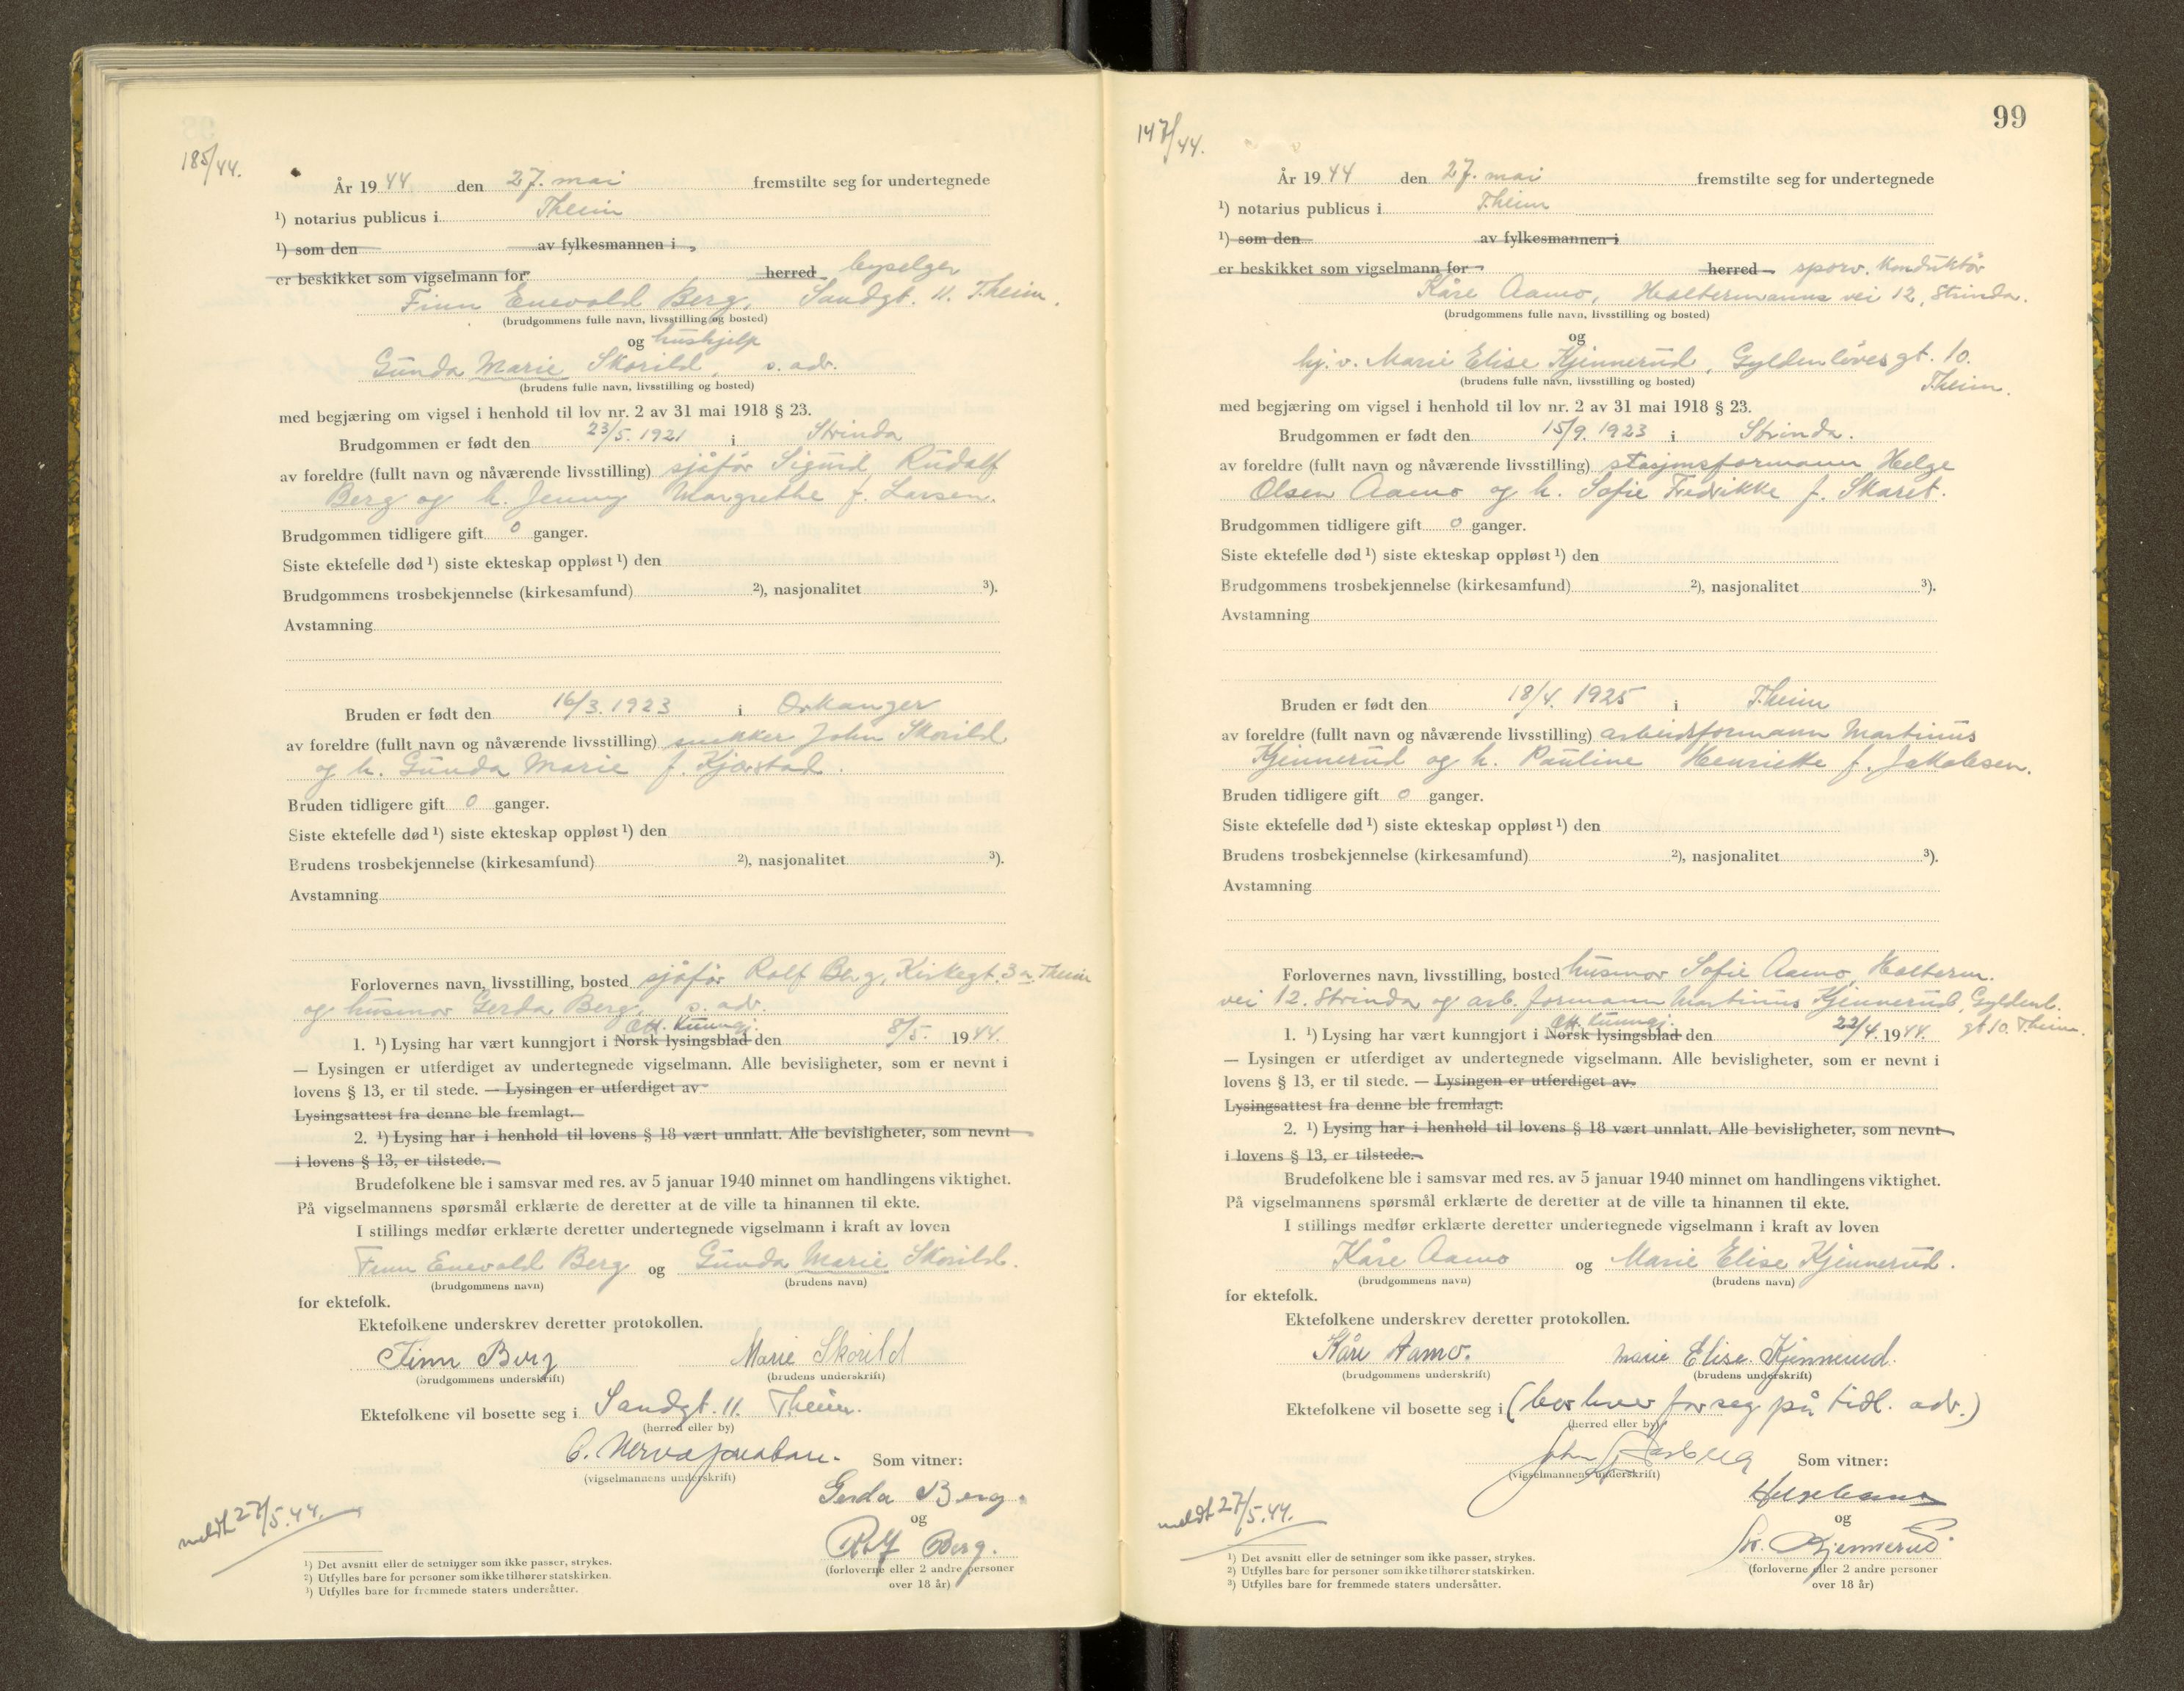 185/44.
År 1944 den 27. mai fremstilte seg for undertegnede
¹) notarius publicus i T.heim
¹) som den av fylkesmannen i
er beskikket som vigselmann for herred byselger
Finn Enevold Berg, Sandgt. 11. T.heim.
(brudgommens fulle navn, livsstilling og bosted)
og hushjelp
Gunda Marie Skorild, s. adr.
(brudens fulle navn, livsstilling og bosted)
med begjæring om vigsel i henhold til lov nr. 2 av 31 mai 1918 § 23.
Brudgommen er født den 23/5. 1921 i Strinda
av foreldre (fullt navn og nåværende livsstilling) sjåfør Sigurd Rudolf
Berg og h. Jenny Margrethe f. Larsen.
Brudgommen tidligere gift 0 ganger.
Siste ektefelle død ¹) siste ekteskap oppløst ¹) den
Brudgommens trosbekjennelse (kirkesamfund) ²), nasjonalitet ³).
Avstamning
Bruden er født den 16/3. 1923 i Orkanger
av foreldre (fullt navn og nåværende livsstilling) snekker John Skorild
og h. Gunda Marie f. Kjærstad.
Bruden tidligere gift 0 ganger.
Siste ektefelle død ¹) siste ekteskap oppløst ¹) den
Brudens trosbekjennelse (kirkesamfund) ²), nasjonalitet ³).
Avstamning
Forlovernes navn, livsstilling, bosted sjåfør Rolf Berg, Kirkegt. 3a, T.heim
og husmor Gerda Berg, s. adr.
Off. kunngj.
1. ¹) Lysing har vært kunngjort i Norsk lysingsblad den 8/5. 1944.
— Lysingen er utferdiget av undertegnede vigselmann. Alle bevisligheter, som er nevnt i
lovens § 13, er til stede. — Lysingen er utferdiget av
Lysingsattest fra denne ble fremlagt.
2. ¹) Lysing har i henhold til lovens § 18 vært unnlatt. Alle bevisligheter, som nevnt
i lovens § 13, er tilstede.
Brudefolkene ble i samsvar med res. av 5 januar 1940 minnet om handlingens viktighet.
På vigselmannens spørsmål erklærte de deretter at de ville ta hinannen til ekte.
I stillings medfør erklærte deretter undertegnede vigselmann i kraft av loven
Finn Enevold Berg og Gunda Marie Skorild.
(brudgommens navn) (brudens navn)
for ektefolk.
Ektefolkene underskrev deretter protokollen.
Finn Berg Marie Skorild
(brudgommens underskrift) (brudens underskrift)
Ektefolkene vil bosette seg i Sandgt. 11. T.heim.
(herred eller by)
Som vitner:
(vigselmannens underskrift)
Gerda Berg.
og
Rolf Berg.
(forloverne eller 2 andre personer
over 18 år)
meldt 27/5.44.
¹) Det avsnitt eller de setninger som ikke passer, strykes.
²) Utfylles bare for personer som ikke tilhører statskirken.
³) Utfylles bare for fremmede staters undersåtter.
99
147/44.
År 1944 den 27. mai fremstilte seg for undertegnede
¹) notarius publicus i T.heim
¹) som den av fylkesmannen i
er beskikket som vigselmann for herred sporv. konduktør
Kåre Aamo, Haltermanns vei 12, Strinda.
(brudgommens fulle navn, livsstilling og bosted)
og
hj.v. Marie Elise Kjennerud, Gyldenløvesgt. 10.
T.heim.
(brudens fulle navn, livsstilling og bosted)
med begjæring om vigsel i henhold til lov nr. 2 av 31 mai 1918 § 23.
Brudgommen er født den 15/9. 1923 i Strinda.
av foreldre (fullt navn og nåværende livsstilling) stasjonsformann Helge
Olsen Aamo og h. Sofie Fredrikke f. Skaret.
Brudgommen tidligere gift 0 ganger.
Siste ektefelle død ¹) siste ekteskap oppløst ¹) den
Brudgommens trosbekjennelse (kirkesamfund) ²), nasjonalitet ³).
Avstamning
Bruden er født den 18/4. 1925 i T.heim
av foreldre (fullt navn og nåværende livsstilling) arbeidsformann Martinus
Kjennerud og h. Pauline Henriette f. Jakobsen.
Bruden tidligere gift 0 ganger.
Siste ektefelle død ¹) siste ekteskap oppløst ¹) den
Brudens trosbekjennelse (kirkesamfund) ²), nasjonalitet ³).
Avstamning
Forlovernes navn, livsstilling, bosted husmor Sofie Aamo, Halterm.
vei 12. Strinda og arb. formann Martinus Kjennerud, Gyldenl.
gt. 10. T.heim.
Off. kunngj.
1. ¹) Lysing har vært kunngjort i Norsk lysingsblad den 22/4. 1944.
— Lysingen er utferdiget av undertegnede vigselmann. Alle bevisligheter, som er nevnt i
lovens § 13, er til stede. — Lysingen er utferdiget av
Lysingsattest fra denne ble fremlagt.
2. ¹) Lysing har i henhold til lovens § 18 vært unnlatt. Alle bevisligheter, som nevnt
i lovens § 13, er tilstede.
Brudefolkene ble i samsvar med res. av 5 januar 1940 minnet om handlingens viktighet.
På vigselmannens spørsmål erklærte de deretter at de ville ta hinannen til ekte.
I stillings medfør erklærte deretter undertegnede vigselmann i kraft av loven
Kåre Aamo og Marie Elise Kjennerud.
(brudgommens navn) (brudens navn)
for ektefolk.
Ektefolkene underskrev deretter protokollen.
Kåre Aamo. Marie Elise Kjennerud.
(brudgommens underskrift) (brudens underskrift)
Ektefolkene vil bosette seg i (bor hver for seg på tidl. adr.)
(herred eller by)
John Som vitner:
(vigselmannens underskrift)
og
M. Kjennerud.
(forloverne eller 2 andre personer
over 18 år)
meldt 27/5.44.
¹) Det avsnitt eller de setninger som ikke passer, strykes.
²) Utfylles bare for personer som ikke tilhører statskirken.
³) Utfylles bare for fremmede staters undersåtter.